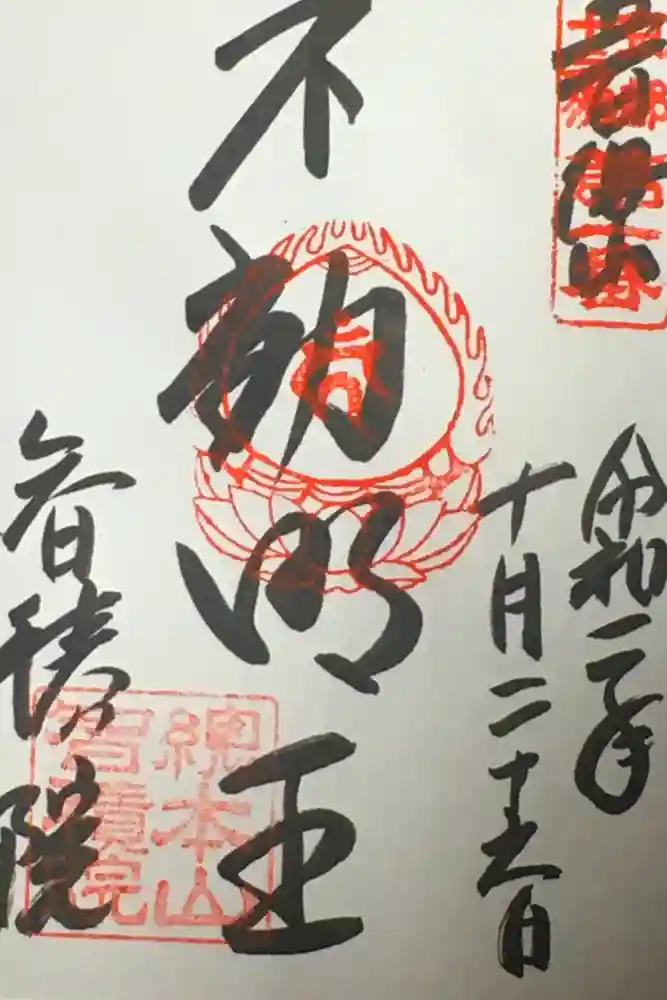 令和二年
十月二十六日
不動明王
總本山
智積院
智積院